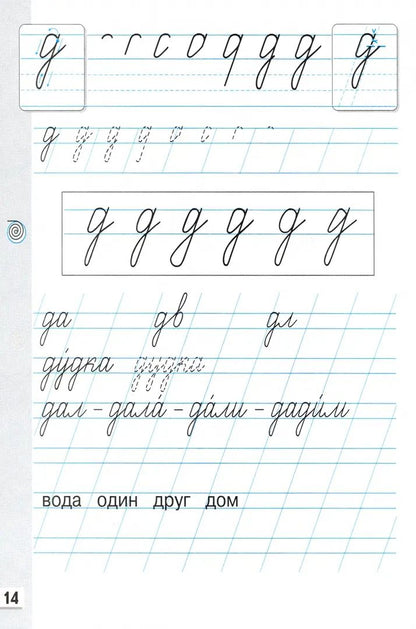 д г с о д д д д
д д д д
д д д д д д
да дв дл
ду́дка дудка
дал – дала́ – да́ли – дади́м
вода один друг дом
14